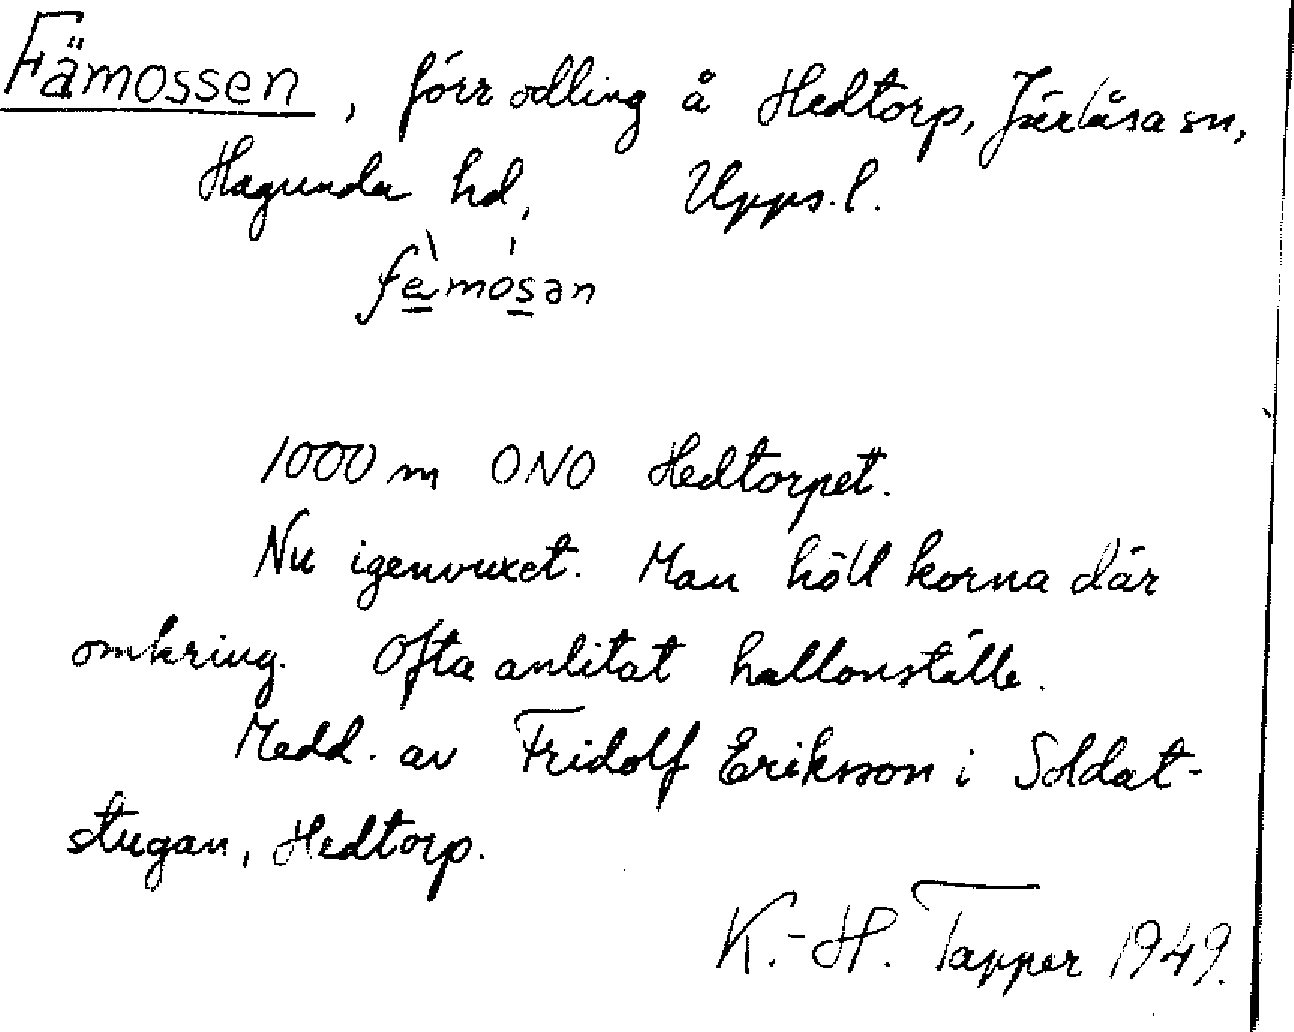 Fämossen, förr odling å Hedtorp, Järlåsa sn,
Hagunda hd, Upps. l.
fè̱mós̱ən
1000 m ONO Hedtorpet.
Nu igenvuxet. Man höll korna där
omkring. Ofta anlitat hallonställe.
Medd. av Fridolf Eriksson i Soldat-
stugan, Hedtorp.
K.-H. Tapper 1949.